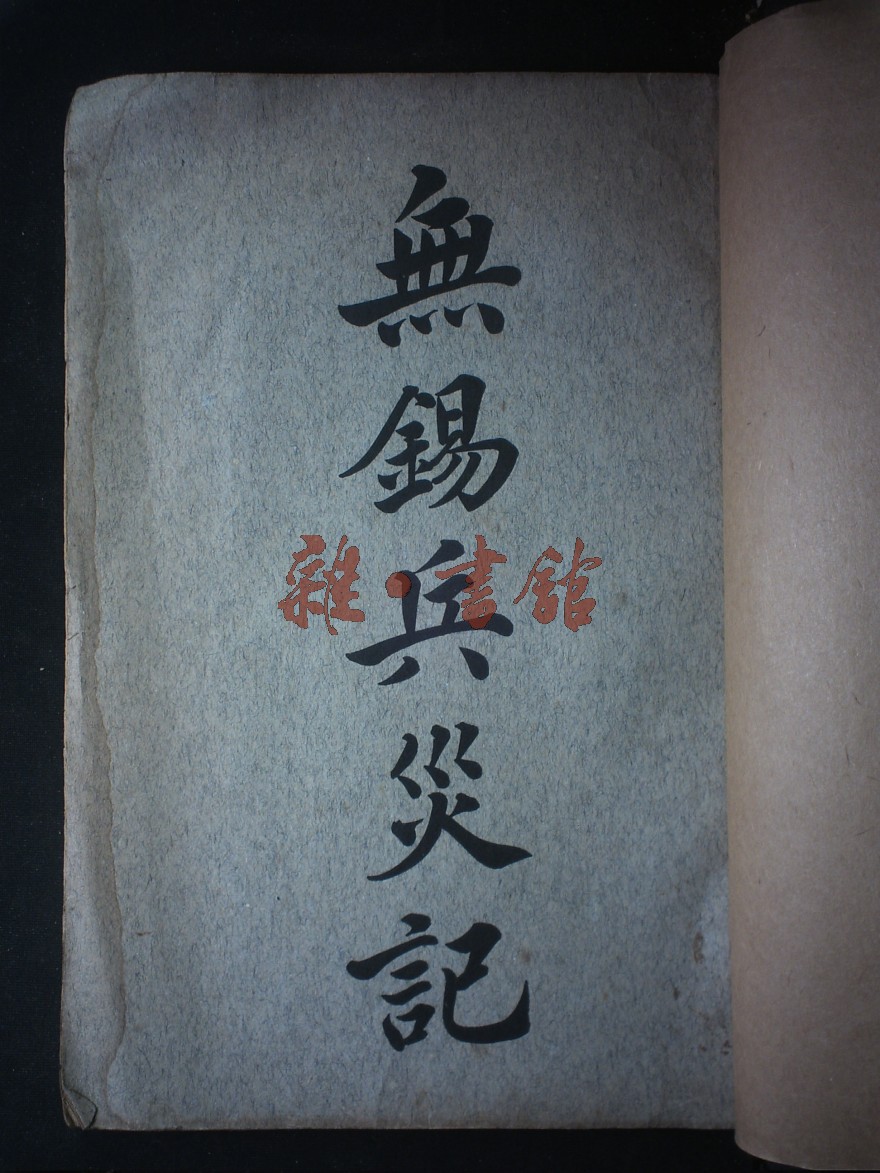 無錫兵災記
雜·書館